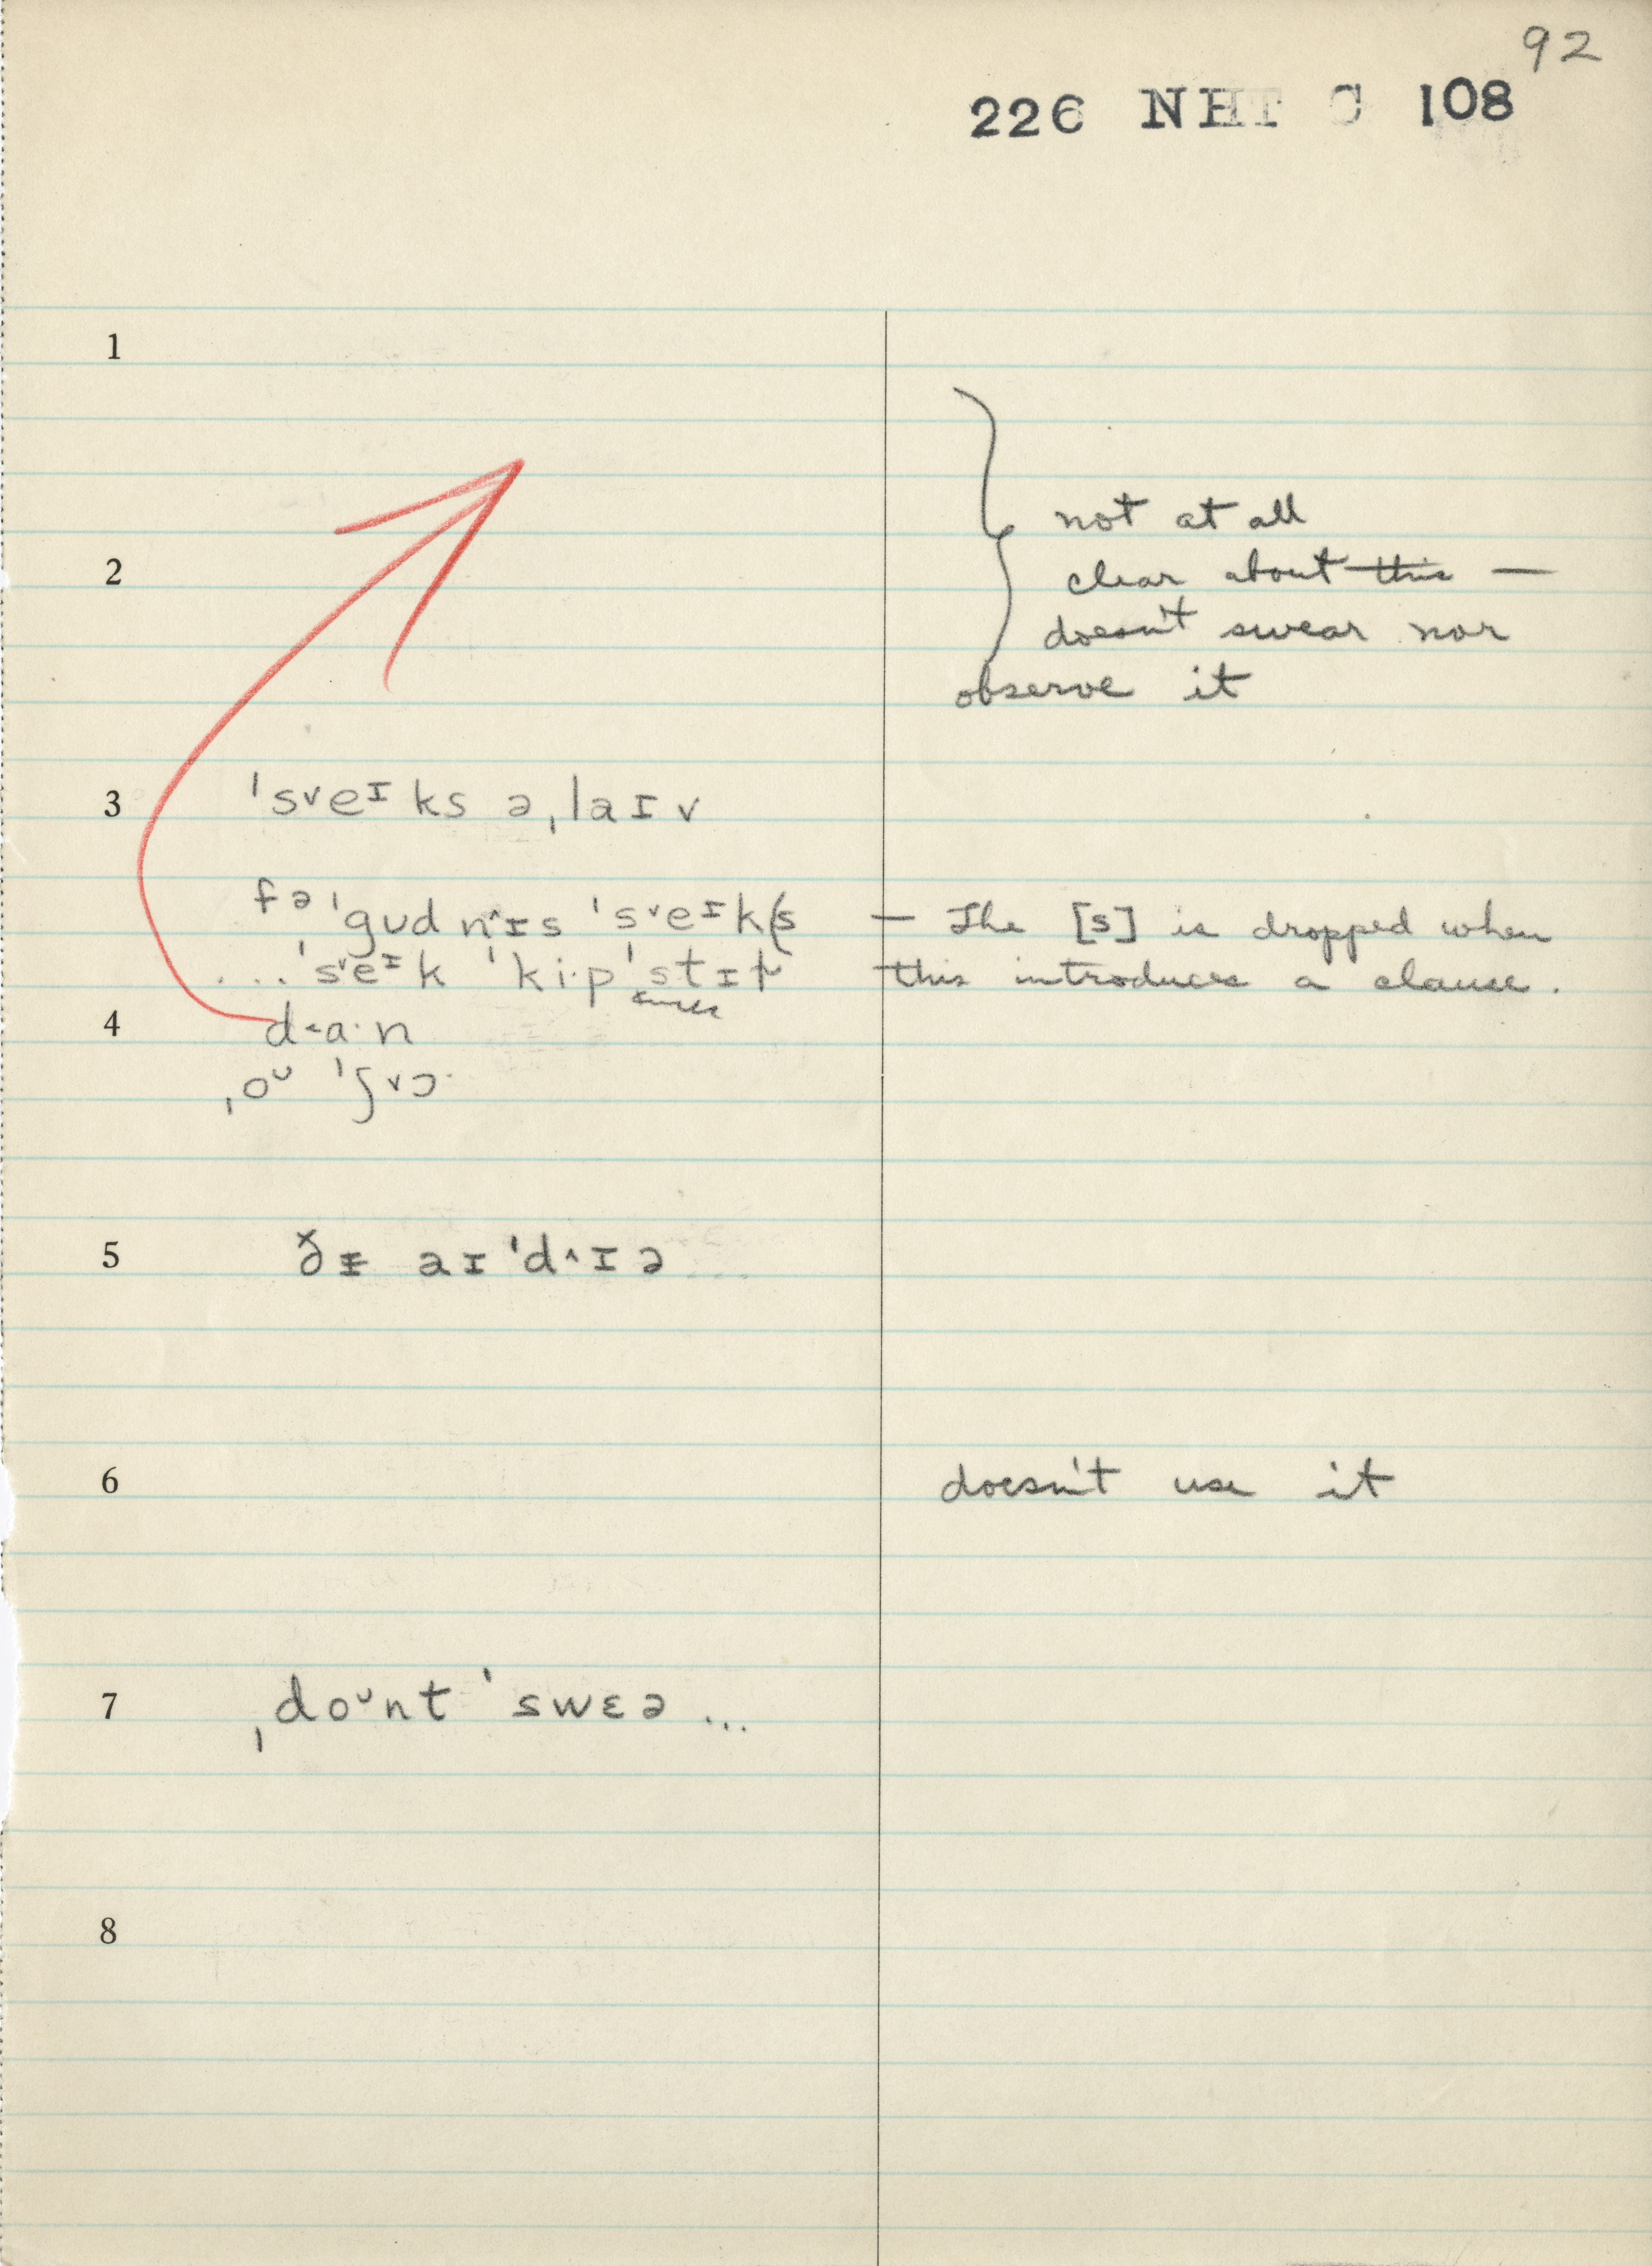 92
226 NHT C 108
1
not at all
2
clear about this —
doesn't swear nor
observe it
3 ˈs˅eᶦks əˌlaɪv
fəˈgʊdn˄ɪs ˈs˅eᶦk(s — The [s] is dropped when
....ˈs˅eᶦk ˈki·pˈstɪɫ this introduces a clause.
4 d˂a·n
ˌoᶷ ˈʃ˅ɔ·
5 ðɪ aɪˈd˄ɪə
6 doesn't use it
7 ˌdoᶷnt ˈswɛə ...
8